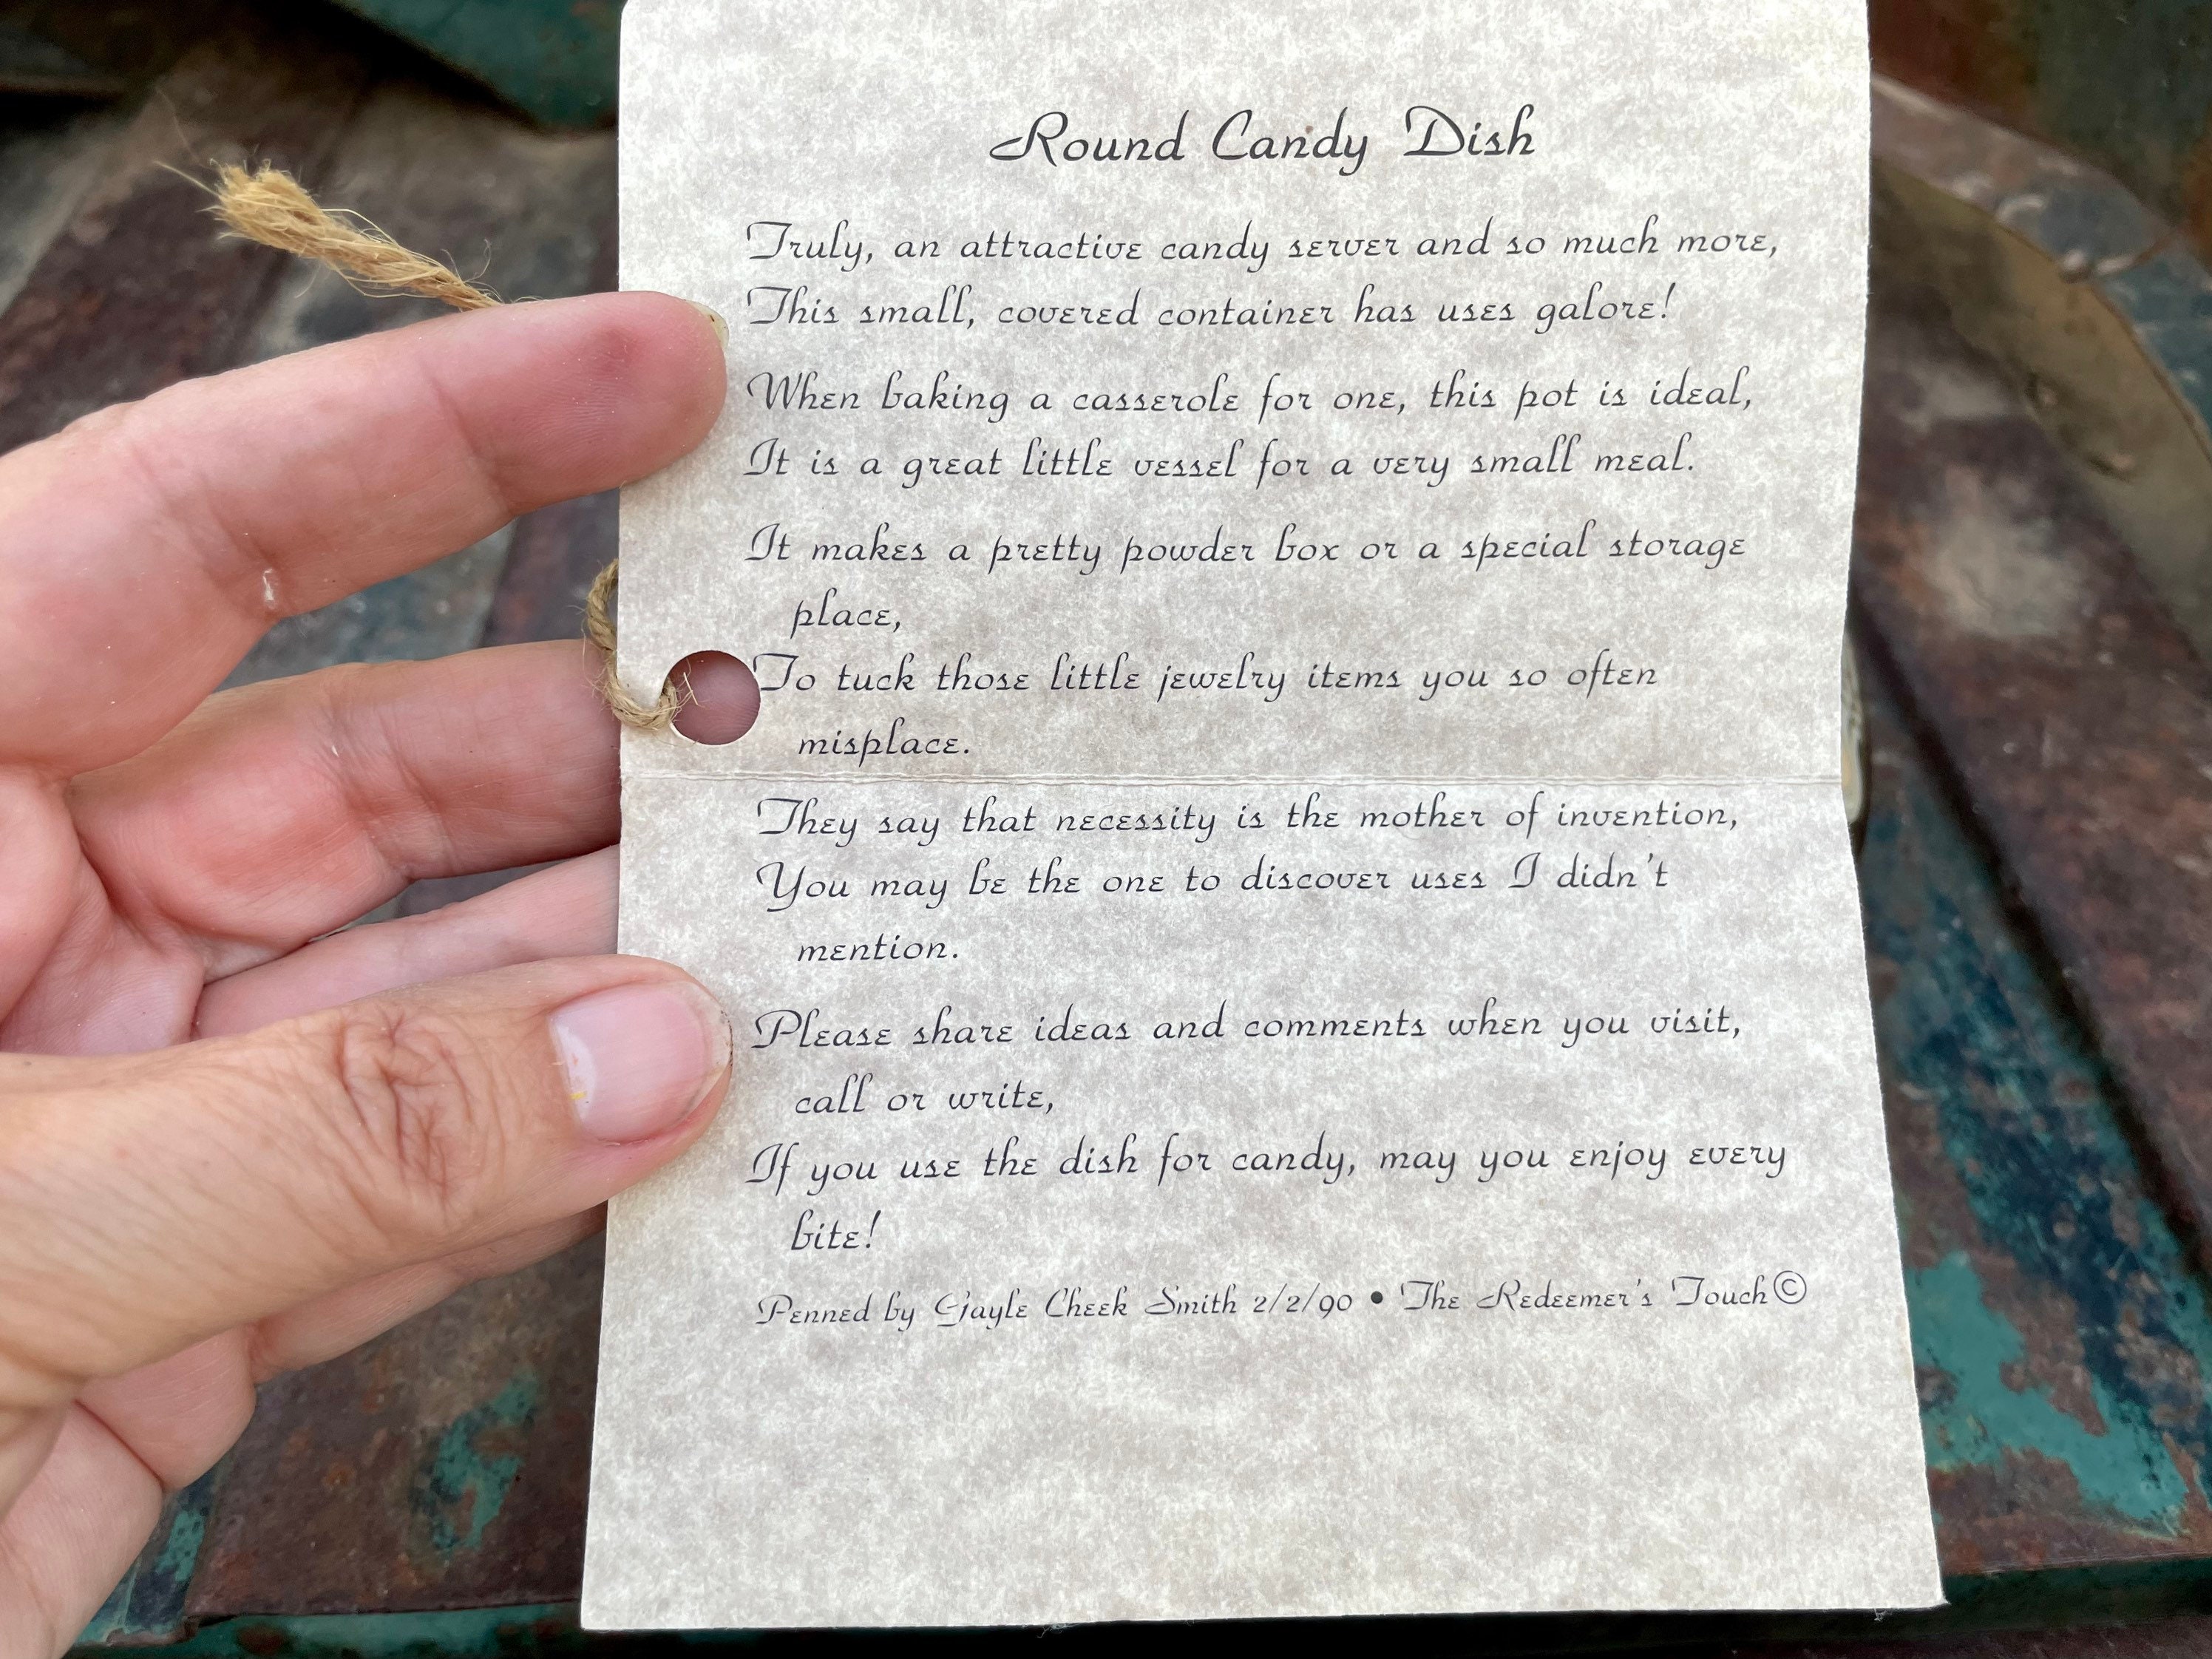 Round Candy Dish
Truly, an attractive candy server and so much more,
This small, covered container has uses galore!
When baking a casserole for one, this pot is ideal,
It is a great little vessel for a very small meal.
It makes a pretty powder box or a special storage
place,
To tuck those little jewelry items you so often
misplace.
They say that necessity is the mother of invention,
You may be the one to discover uses I didn't
mention.
Please share ideas and comments when you visit,
call or write,
If you use the dish for candy, may you enjoy every
bite!
Penned by Gayle Cheek Smith 2/2/90 • The Redeemer's Touch©